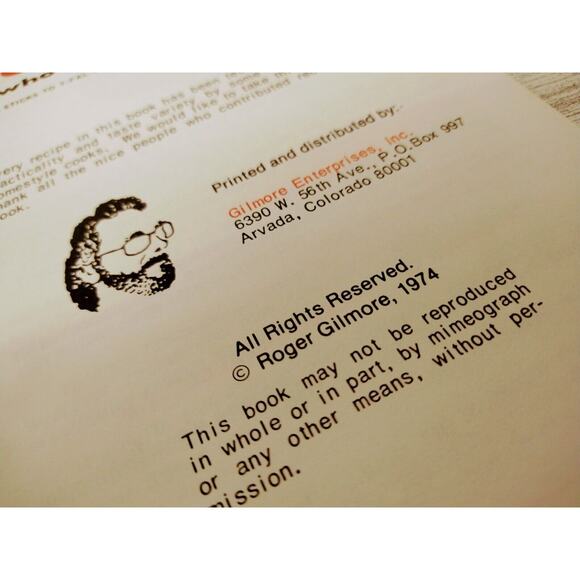 who
every recipe in this book has been
practicality and taste variety by some
homestyle cooks. We would like to take this
thank all the nice people who contributed
book.
Printed and distributed by:
Gilmore Enterprises, Inc.
6390 W. 56th Ave., P.O. Box 997
Arvada, Colorado 80001
All Rights Reserved.
© Roger Gilmore, 1974
This book may not be reproduced
in whole or in part, by mimeograph
or any other means, without per-
mission.